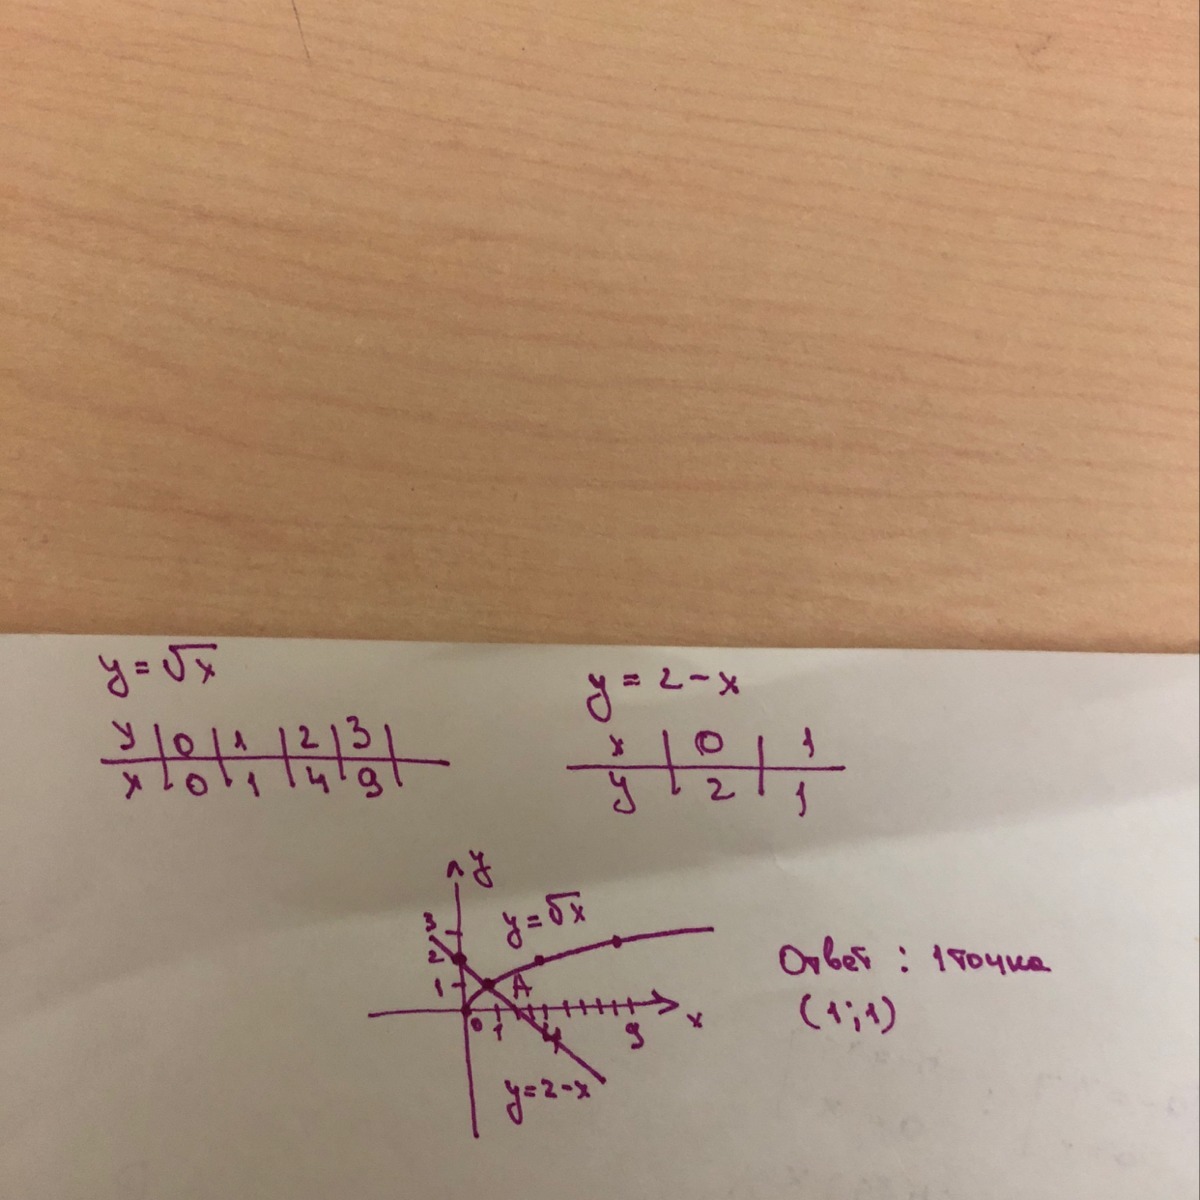 y = √x
y | 0 | 1 | 2 | 3 |
x | 0 | 1 | 4 | 9 |
y = 2 - x
x | 0 | 1
y | 2 | 1
y
3
2
1
y = √x
A
0 1 4 9 x
y = 2 - x
Ответ : 1 точка
(1;1)